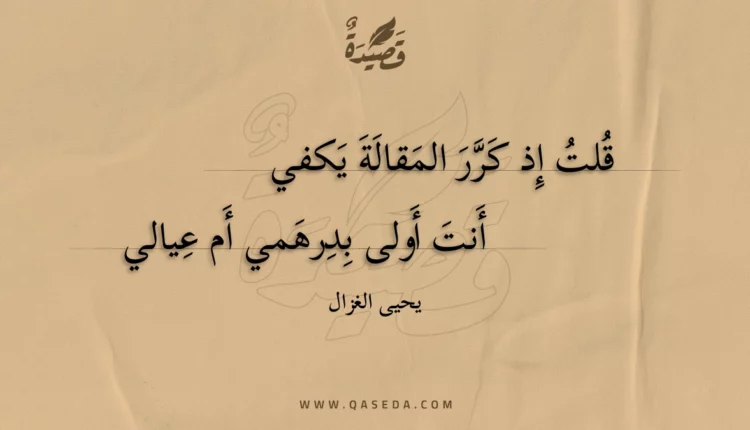 قَصِيْدَةٌ
قُلتُ إِذ كَرَّرَ المَقالَةَ يَكفي
أَنتَ أَولى بِدِرهَمي أَم عِيالي
يحيى الغزال
WWW.QASEDA.COM